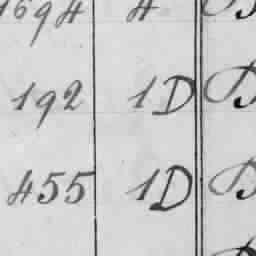 1694 4
192 1D B
455 1D B